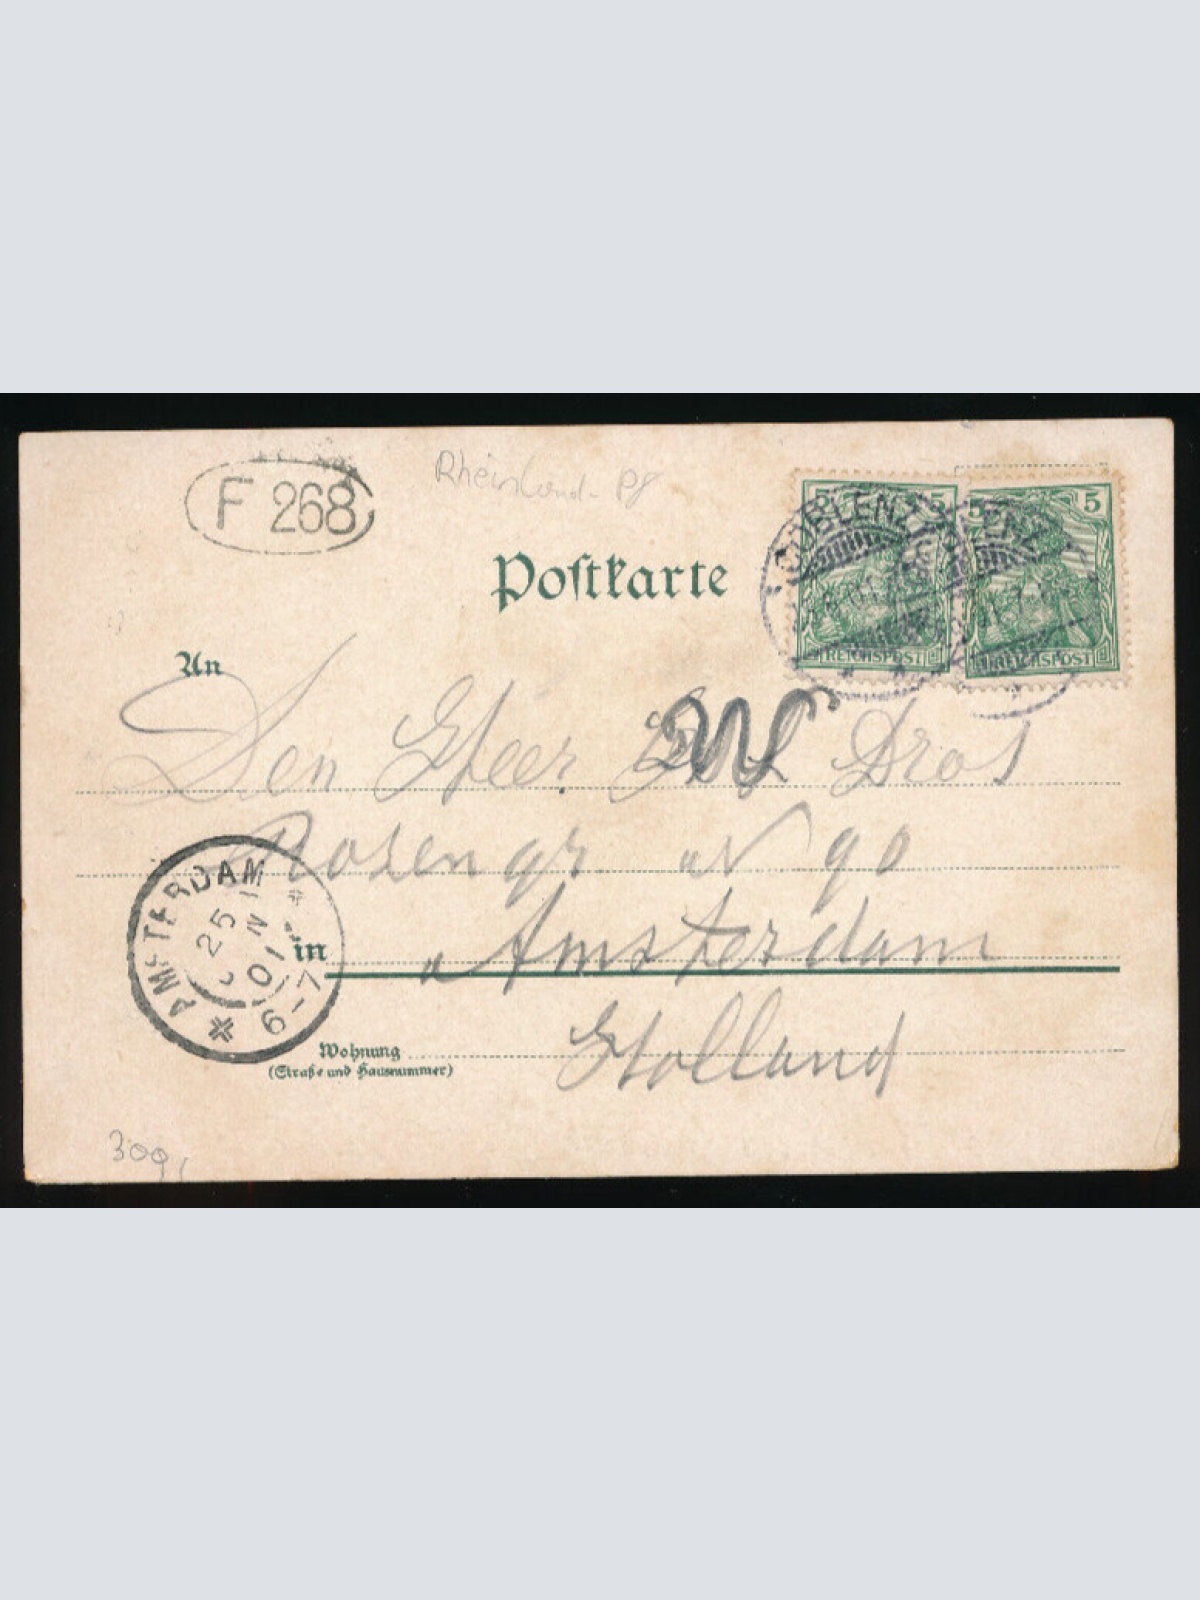 F 268
Rheinland-Pf
Postkarte
5 5
5 5
COBLENZ
REICHSPOST
REICHSPOST
An
Den Heer Dros
Rosengr 90
AMSTERDAM
25
01
6-7
in Amsterdam
Holland
Wohnung
(Straße und Hausnummer)
300,